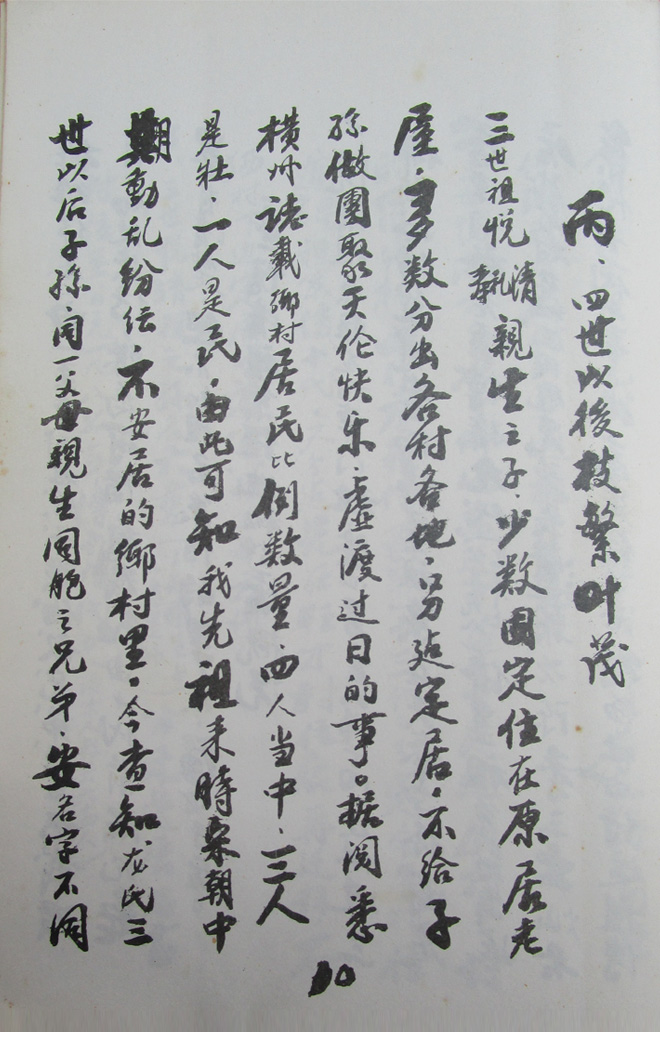 丙、四世以後枝繁叶茂
三世祖悦情、親生之子、少数固定住在原居老
屋、多数分出各村各地、另廷定居、不给子
孫做團聚天伦快乐、虚渡过日的事。据阅悉
横州誌載鄉村居民比例数量、四人当中、三人
是壮、一人是民、由此可知我先祖来時宋朝中
期動乱纷纭、不安居的鄉村里。今查知龙氏三
世以后子孫、同一父母親生同胞之兄弟、安名字不同
10